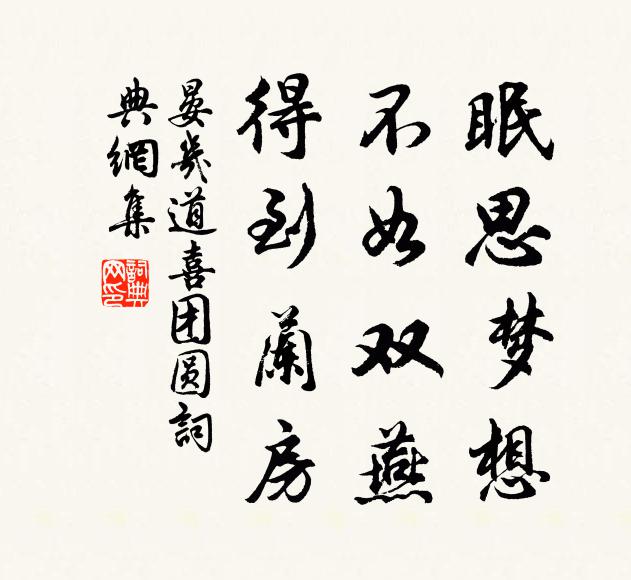 眠思梦想
不如双燕
得到蘭房
晏幾道喜团圆詞
典網集
詞典网印